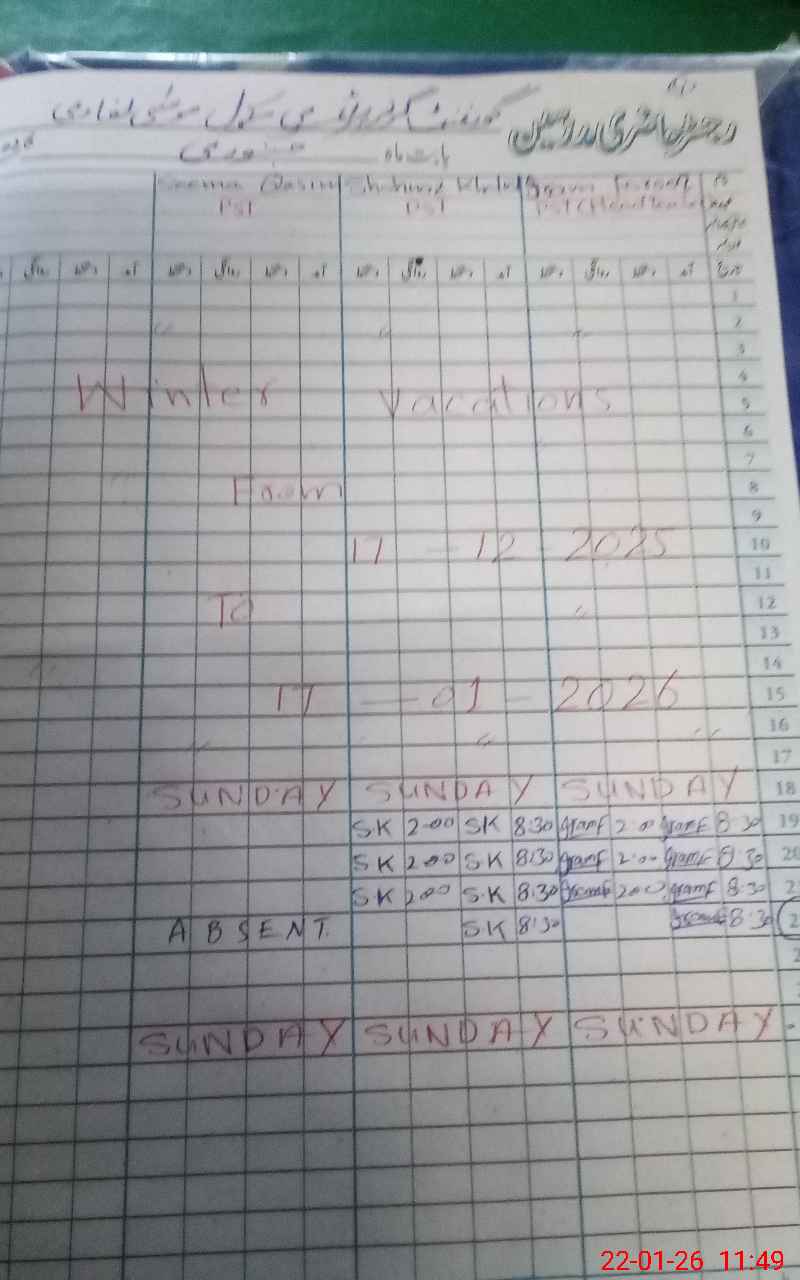 رجسٹر حاضری مدرسین گورنمنٹ گرلز پرائمری سکول
بابت ماہ جنوری
Seema Qasim Shahnaz
PST PST PST (Head
آمد دستخط روانگی دستخط آمد دستخط روانگی دستخط آمد دستخط روانگی دستخط آمد دستخط روانگی
1
2
3
4
Winter Vacations 5
6
7
From 8
9
17 - 12 - 2025 10
11
TO 12
13
14
17 - 01 - 2026 15
16
17
SUNDAY SUNDAY SUNDAY 18
SK 2:00 SK 8:30 2:00 8:30 19
SK 2:00 SK 8:30 2:00 8:30 20
SK 2:00 SK 8:30 2:00 8:30 2
ABSENT SK 8:30 8:30 2
SUNDAY SUNDAY SUNDAY
22-01-26 11:49